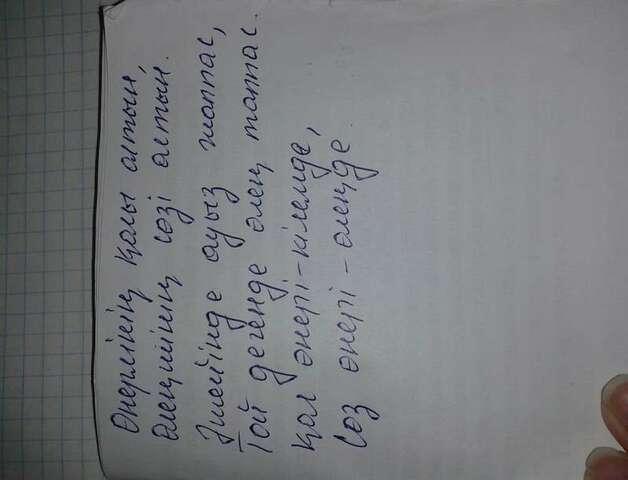 Өнерлінің қолы алтын,
Өлеңшінің сөзі алтын.
Әшейінде ауыз жаппас,
Той дегенде өлең таппас.
Қол өнері - кілемде,
Сөз өнері - өлеңде.